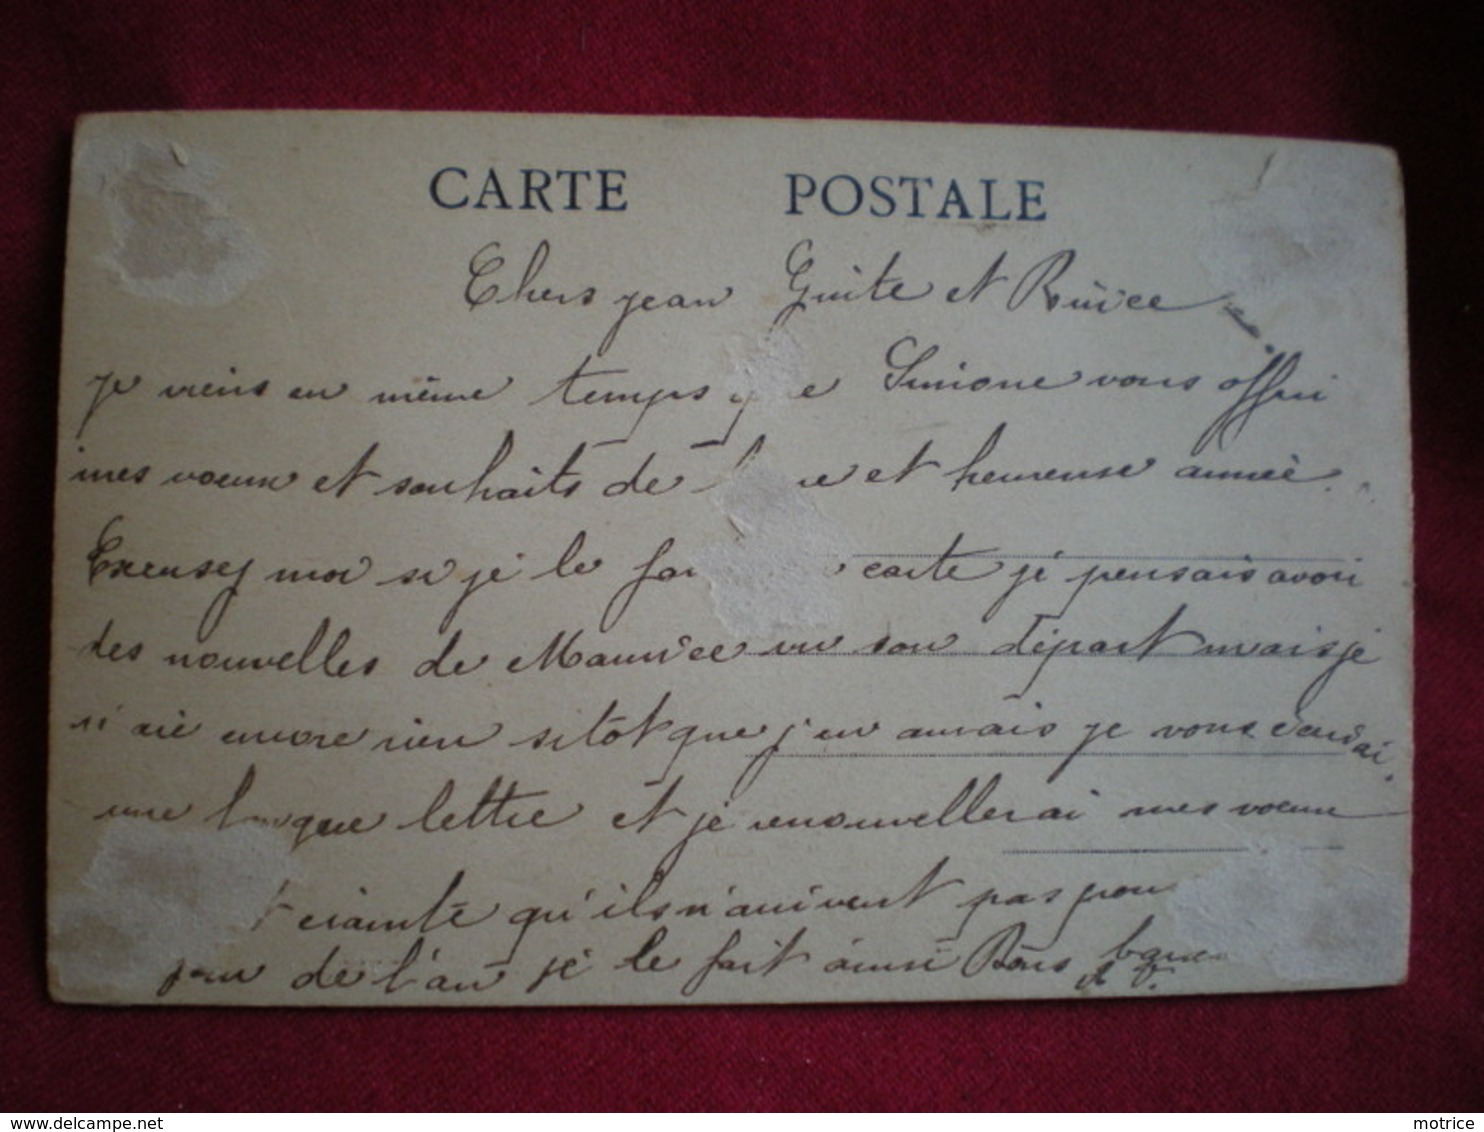 CARTE POSTALE
Chers jean Guite et
je viens en même temps que Simone vous offrir
mes voeux et souhaits de et heureuse année.
Excusez moi si je le carte je pensais avoir
des nouvelles de Maurice vu son départ mais je
n'ai encore rien sitôt que j'en aurais je vous
une longue lettre et je renouvellerai mes voeux
crainte qu'ils n'arrivent pas pour
jour de l'an je le fait ainsi Bons
delcampe.net
motrice